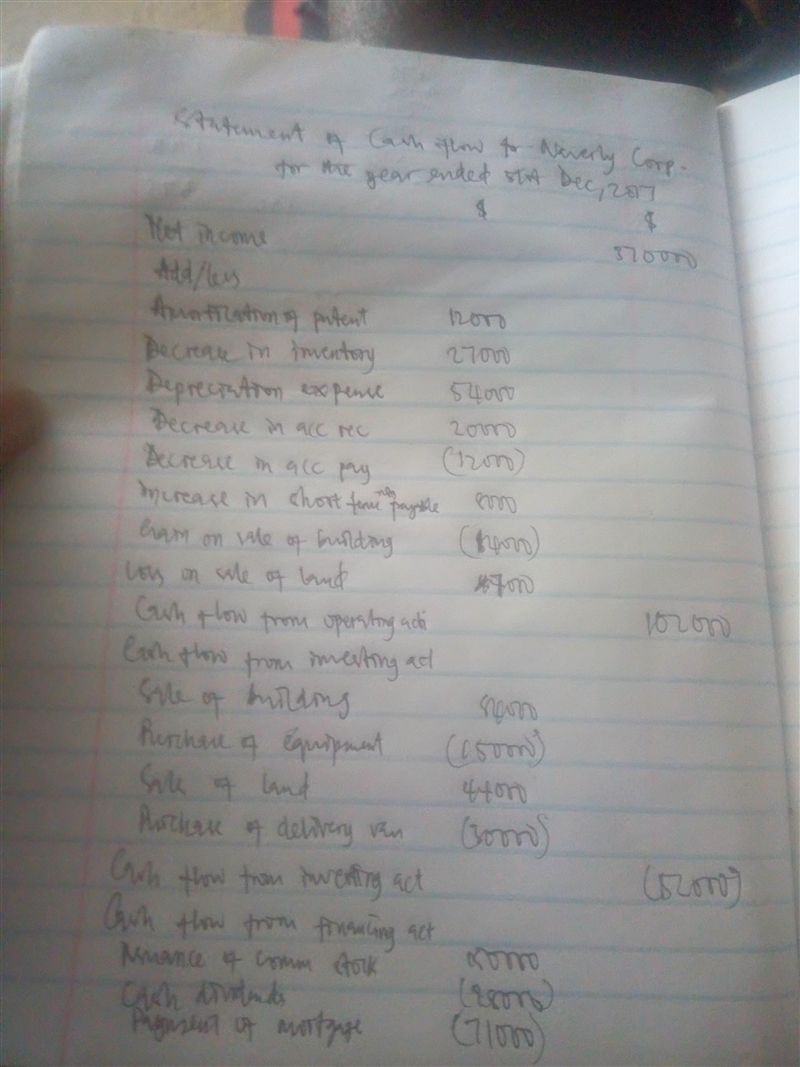 Statement of Cash flow for Waverly Corp.
for the year ended 31st Dec, 2017
$ $
Net income 370000
Add/less
Amortization of patent 12000
Decrease in inventory 27000
Depreciation expense 54000
Decrease in acc rec 20000
Decrease in acc pay (12000)
Increase in short term note payable 8000
Gain on sale of building (14000)
Loss on sale of land 7000
Cash flow from operating acti 102000
Cash flow from investing act
Sale of building
Purchase of equipment (65000)
Sale of land 44000
Purchase of delivery van (30000)
Cash flow from investing act
Cash flow from financing act
Issuance of comm stock
Cash dividends
Payment of mortgage (71000)